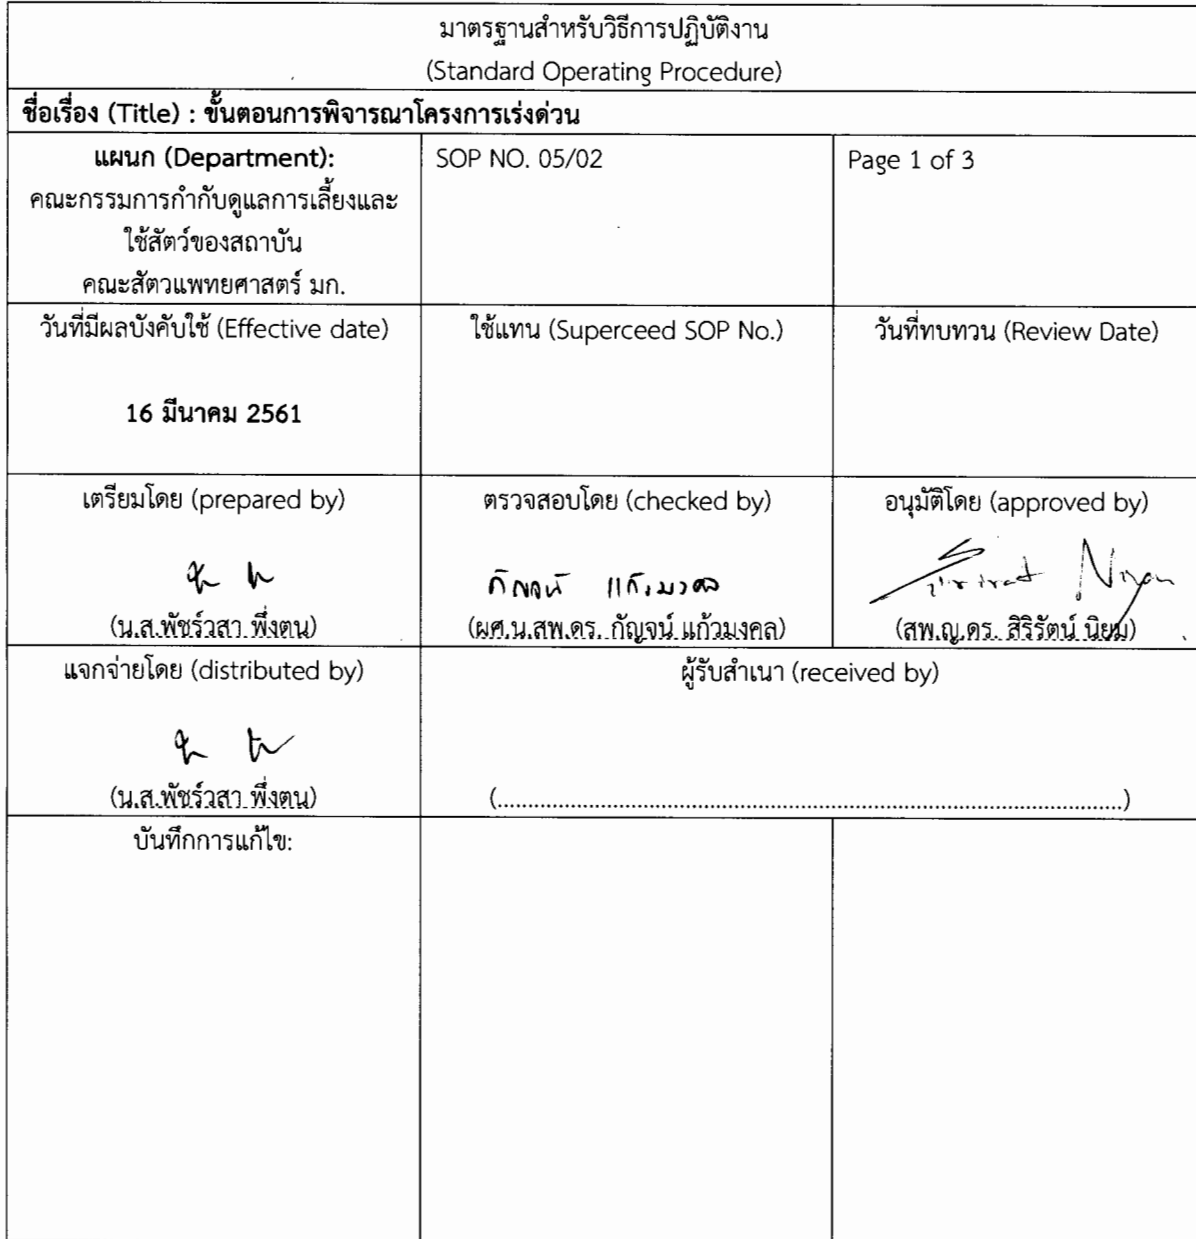 มาตรฐานสำหรับวิธีการปฏิบัติงาน
(Standard Operating Procedure)
ชื่อเรื่อง (Title) : ขั้นตอนการพิจารณาโครงการเร่งด่วน
แผนก (Department):
คณะกรรมการกำกับดูแลการเลี้ยงและ
ใช้สัตว์ของสถาบัน
คณะสัตวแพทยศาสตร์ มก.
SOP NO. 05/02
Page 1 of 3
วันที่มีผลบังคับใช้ (Effective date)
16 มีนาคม 2561
ใช้แทน (Superceed SOP No.)
วันที่ทบทวน (Review Date)
เตรียมโดย (prepared by)
(น.ส.พัชร์วสา พึ่งตน)
ตรวจสอบโดย (checked by)
กัญจน์ แก้วมงคล
(ผศ.น.สพ.ดร. กัญจน์ แก้วมงคล)
อนุมัติโดย (approved by)
(สพ.ญ.ดร. สิริรัตน์ นิยม)
แจกจ่ายโดย (distributed by)
(น.ส.พัชร์วสา พึ่งตน)
ผู้รับสำเนา (received by)
(........................................................................................................)
บันทึกการแก้ไข: